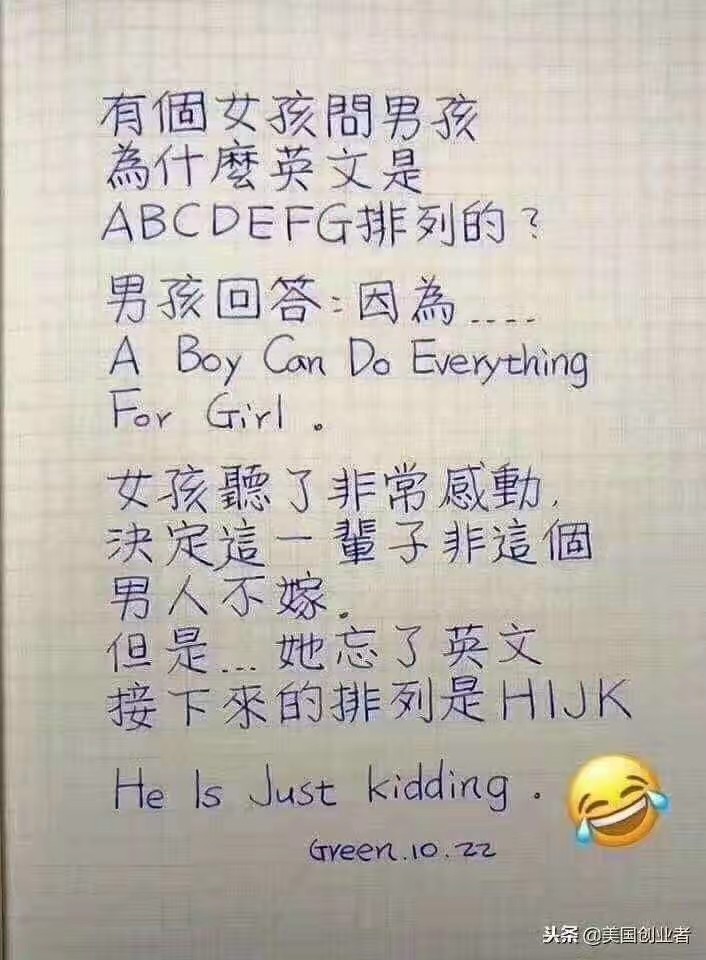 有個女孩問男孩
為什麼英文是
ABCDEFG排列的？
男孩回答：因為....
A Boy Can Do Everything
For Girl 。
女孩聽了非常感動，
決定這一輩子非這個
男人不嫁。
但是...她忘了英文
接下來的排列是HIJK
He Is Just kidding .
Green.10.22
头条 @美国创业者